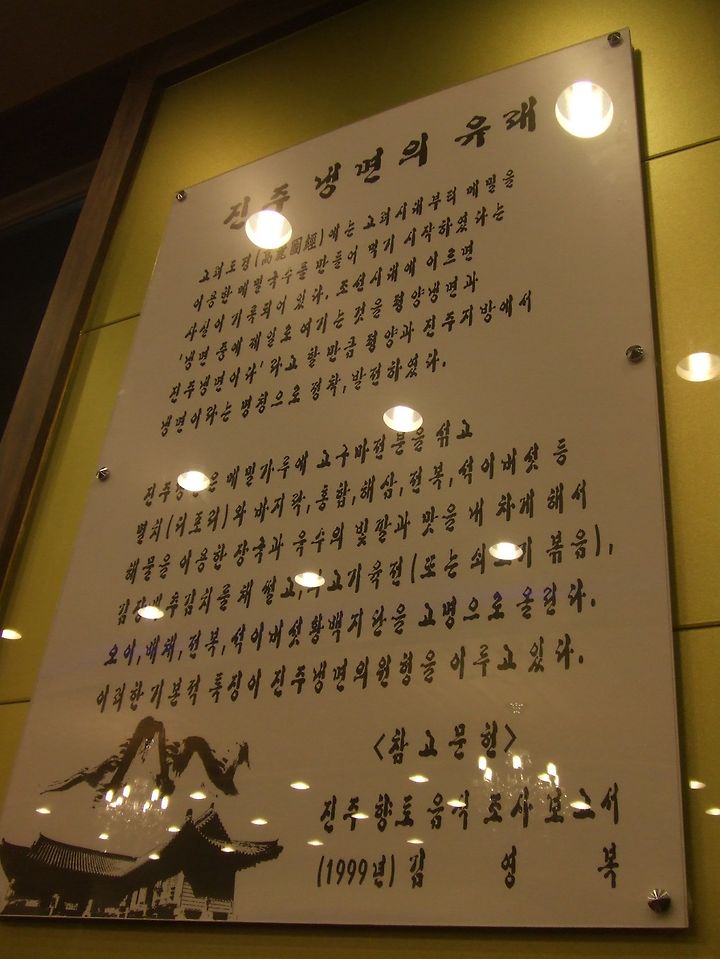 진주 냉면의 유래
고려도경(高麗圖經)에는 고려시대부터 메밀을
이용한 메밀국수를 만들어 먹기 시작하였다는
사실이 기록되어 있다. 조선시대에 이르면
'냉면 중에 제일로 여기는 것을 평양냉면과
진주냉면이다' 라고 할 만큼 평양과 진주지방에서
냉면이라는 명칭으로 정착, 발전하였다.
진주냉면은 메밀가루에 고구마전분을 섞고
멸치(디포리)와 바지락, 홍합, 해삼, 전복, 석이버섯 등
해물을 이용한 장국과 육수의 빛깔과 맛을 내 차게 해서
김장배추김치를 채 썰고, 쇠고기육전(또는 쇠고기 볶음),
오이, 배채, 전복, 석이버섯황백지단을 고명으로 올린다.
이러한 기본적 특징이 진주냉면의원형을 이루고있다.
<참고문헌>
진주향토음식 조사 보고서
(1999년) 김 영 복